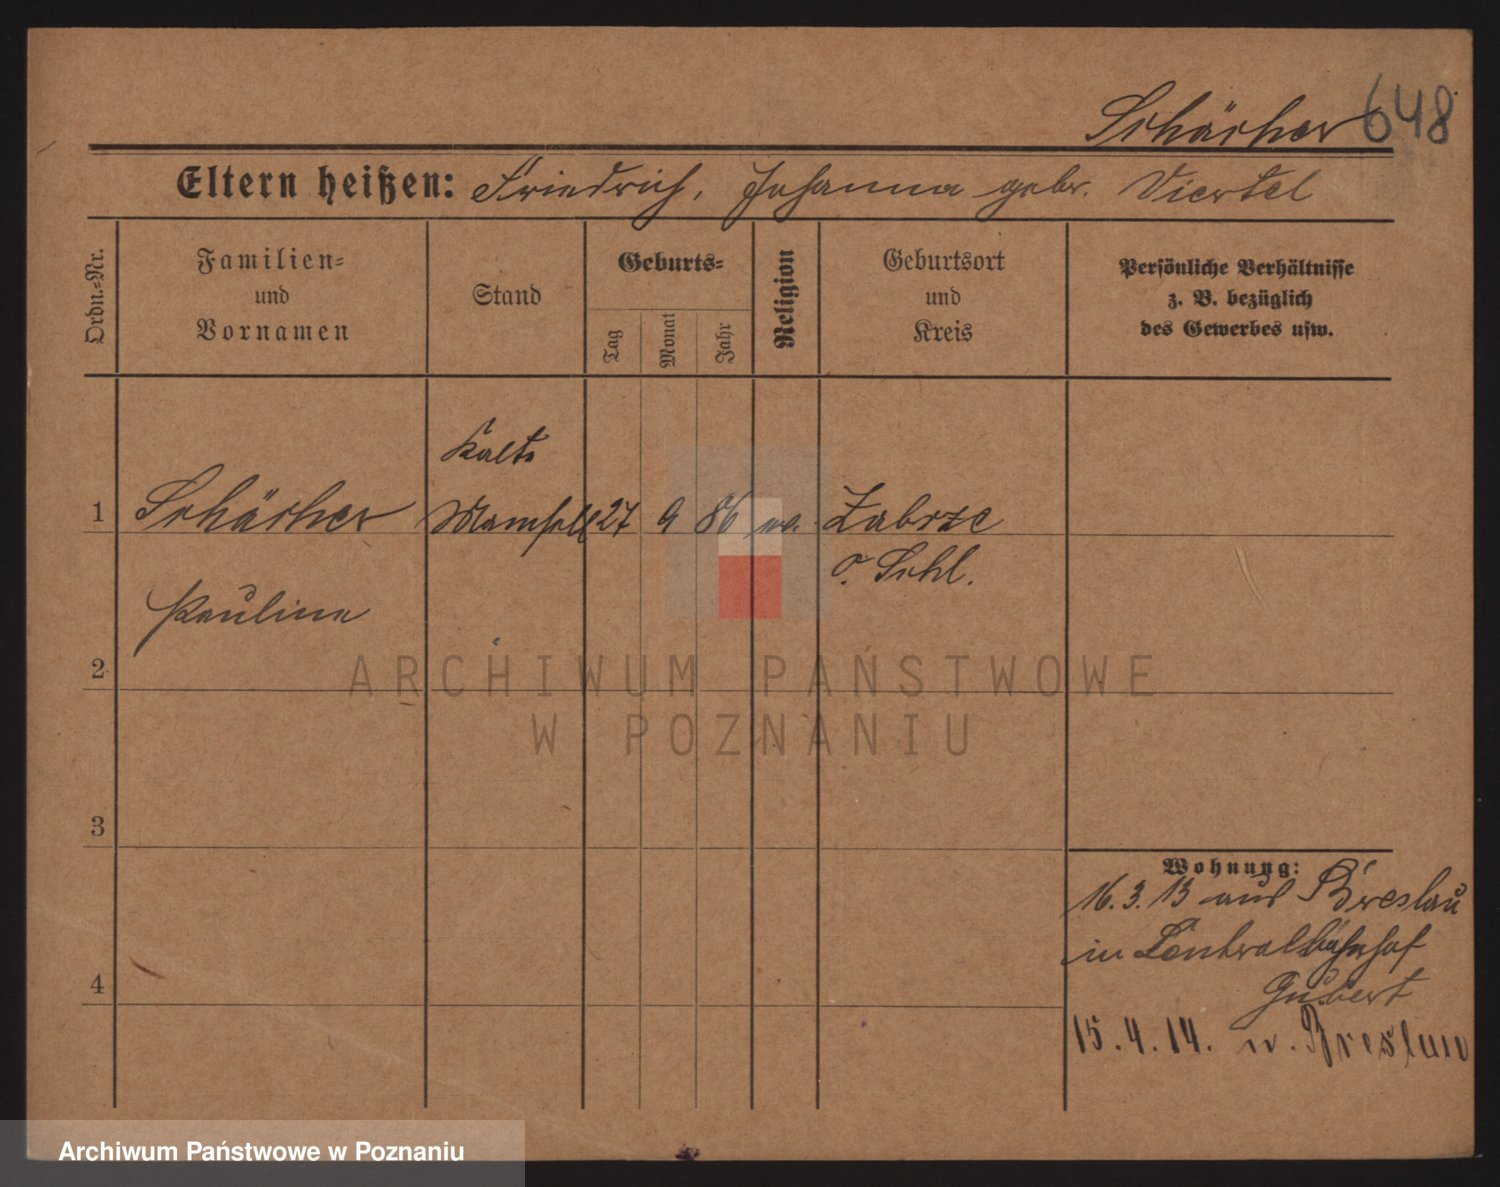 Schärher 648
Eltern heißen: Friedrich, Johanna gebr. Viertel
Ordn.-Nr.
Familien-
und
Vornamen
Stand
Geburts-
Tag
Monat
Jahr
Religion
Geburtsort
und
Kreis
Persönliche Verhältnisse
z. B. bezüglich
des Gewerbes usw.
Kalte
1 Schärher Mamsell 27 9 86 Zabrze
O. Schl.
Pauline
2
ARCHIWUM PAŃSTWOWE
W POZNANIU
3
Wohnung:
16.3.13 aus Breslau
in Centralbahnhof
4
15.4.14. n. Breslau
Archiwum Państwowe w Poznaniu